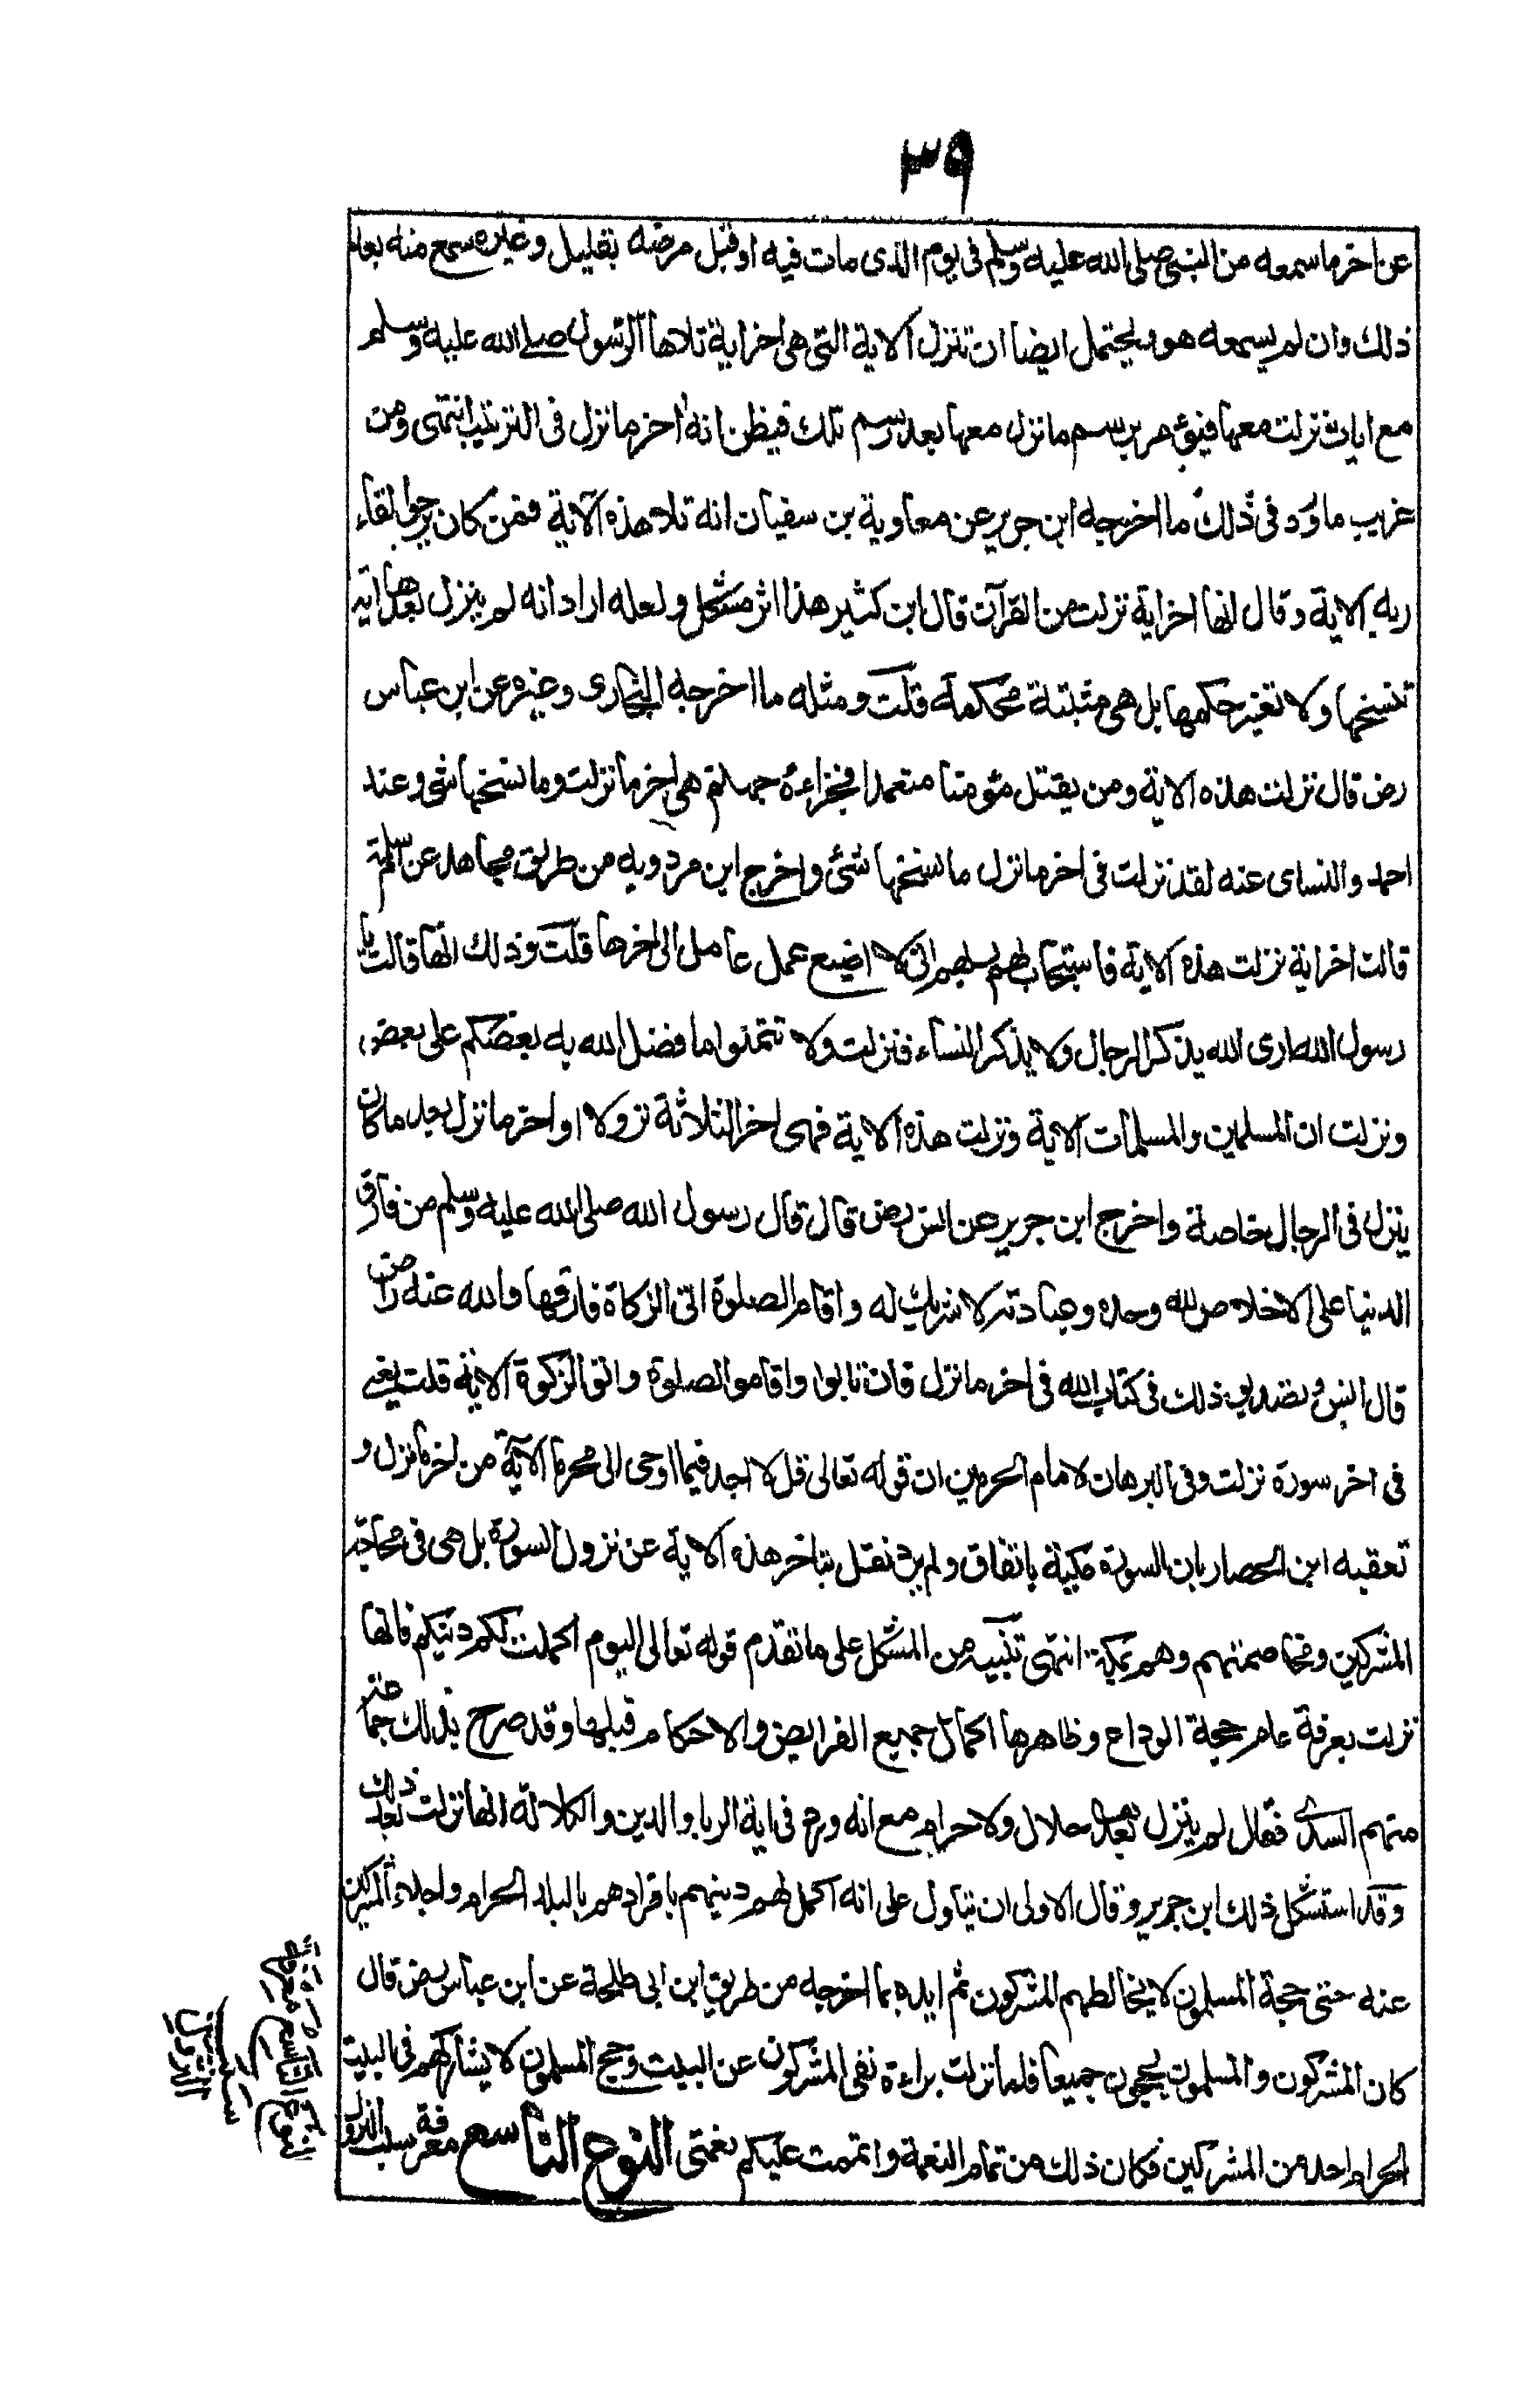 ٣٩
عن اخر ما سمعه من النبي صلى الله عليه وسلم فى يوم الذى مات فيه او قبل مرضه بقليل وغيره سمع منه بعد
ذلك وان لم يسمعه هو ويحتمل ايضا ان تنزل الاية التى هى اخر اية تلاها الرسول صلے الله عليه وسلم
مع ايات نزلت معها فيؤمر برسم ما نزل معها بعد رسم تلك فيظن انه اخر ما نزل فى الترتيب انتهى ومن
غريب ما ورد فى ذلك ما اخرجه ابن جرير عن معاوية بن سفيان انه تلا هذه الآية فمن كان يرجوا لقاء
ربه الاية وقال انها اخر اية نزلت من القرآن قال ابن كثير هذا اثر مشكل ولعله اراد انه لم ينزل بعدها اية
تنسخها ولا تغير حكمها بل هى مثبتة محكمة قلت ومثله ما اخرجه البخارى وغيره عن ابن عباس
رض قال نزلت هذه الاية ومن يقتل مؤمنا متعمدا فجزاءه جهنم هى اخر ما نزلت وما نسخها شئ وعند
احمد والنساى عنه لقد نزلت فى اخر ما نزل ما نسخها شئ واخرج ابن مردويه من طريق مجاهد عن ام سلمة
قالت اخر اية نزلت هذه الاية فاستجاب لهم ربهم انى لا اضيع عمل عامل الى اخرها قلت وذلك انها قالت يا
رسول الله ارى الله يذكر الرجال ولا يذكر النساء فنزلت ولا تتمنوا ما فضل الله به بعضكم على بعض
ونزلت ان المسلمين والمسلمات الاية ونزلت هذه الاية فهى اخر الثلاثة نزولا او اخر ما نزل بعد ما كان
ينزل فى الرجال خاصة واخرج ابن جرير عن انس رض قال قال رسول الله صلى الله عليه وسلم من فارق
الدنيا على الاخلاص لله وحده وعبادته لا شريك له واقام الصلوة اتى الزكاة فارقها والله عنه راض
قال انس وتصديق ذلك فى كتاب الله فى اخر ما نزل فان تابوا واقاموا الصلوة واتوا الزكوة الاية قلت يعنى
فى اخر سورة نزلت وفى البرهان لامام الحرمين ان قوله تعالى قل لا اجد فيما اوحى الى محرما الآية من اخر ما نزل و
تعقبه ابن الحصار بان السورة مكية باتفاق ولم يرد نقل بتاخر هذه الاية عن نزول السورة بل هى فى محاجة
المشركين ومخاصمتهم وهم بمكة انتهى تنبيه من المشكل على ما تقدم قوله تعالى اليوم اكملت لكم دينكم فانها
نزلت بعرفة عام حجة الوداع وظاهرها اكمال جميع الفرايض والاحكام قبلها وقد صرح بذلك جماعة
منهم السدى فقال لم ينزل بعدها حلال ولا حرام مع انه ورد فى اية الربا والدين والكلالة انها نزلت بعد ذلك
وقد استشكل ذلك ابن جرير وقال الاولى ان يتاول على انه اكمل لهم دينهم باقرادهم بالبلد الحرام واجلاء المشركين
عنه حتى حجة المسلمون لا يخالطهم المشركون ثم ايده بما اخرجه من طريق ابن ابى طلحة عن ابن عباس رض قال
كان المشركون والمسلمون يحجون جميعا فلما نزلت براءة نفى المشركون عن البيت وحج المسلمون لا يشاركهم فى البيت
الحرام احد من المشركين فكان ذلك من تمام النعمة واتممت عليكم نعمتى النوع التاسع معرفة سبب النزول
النوع التاسع معرفة